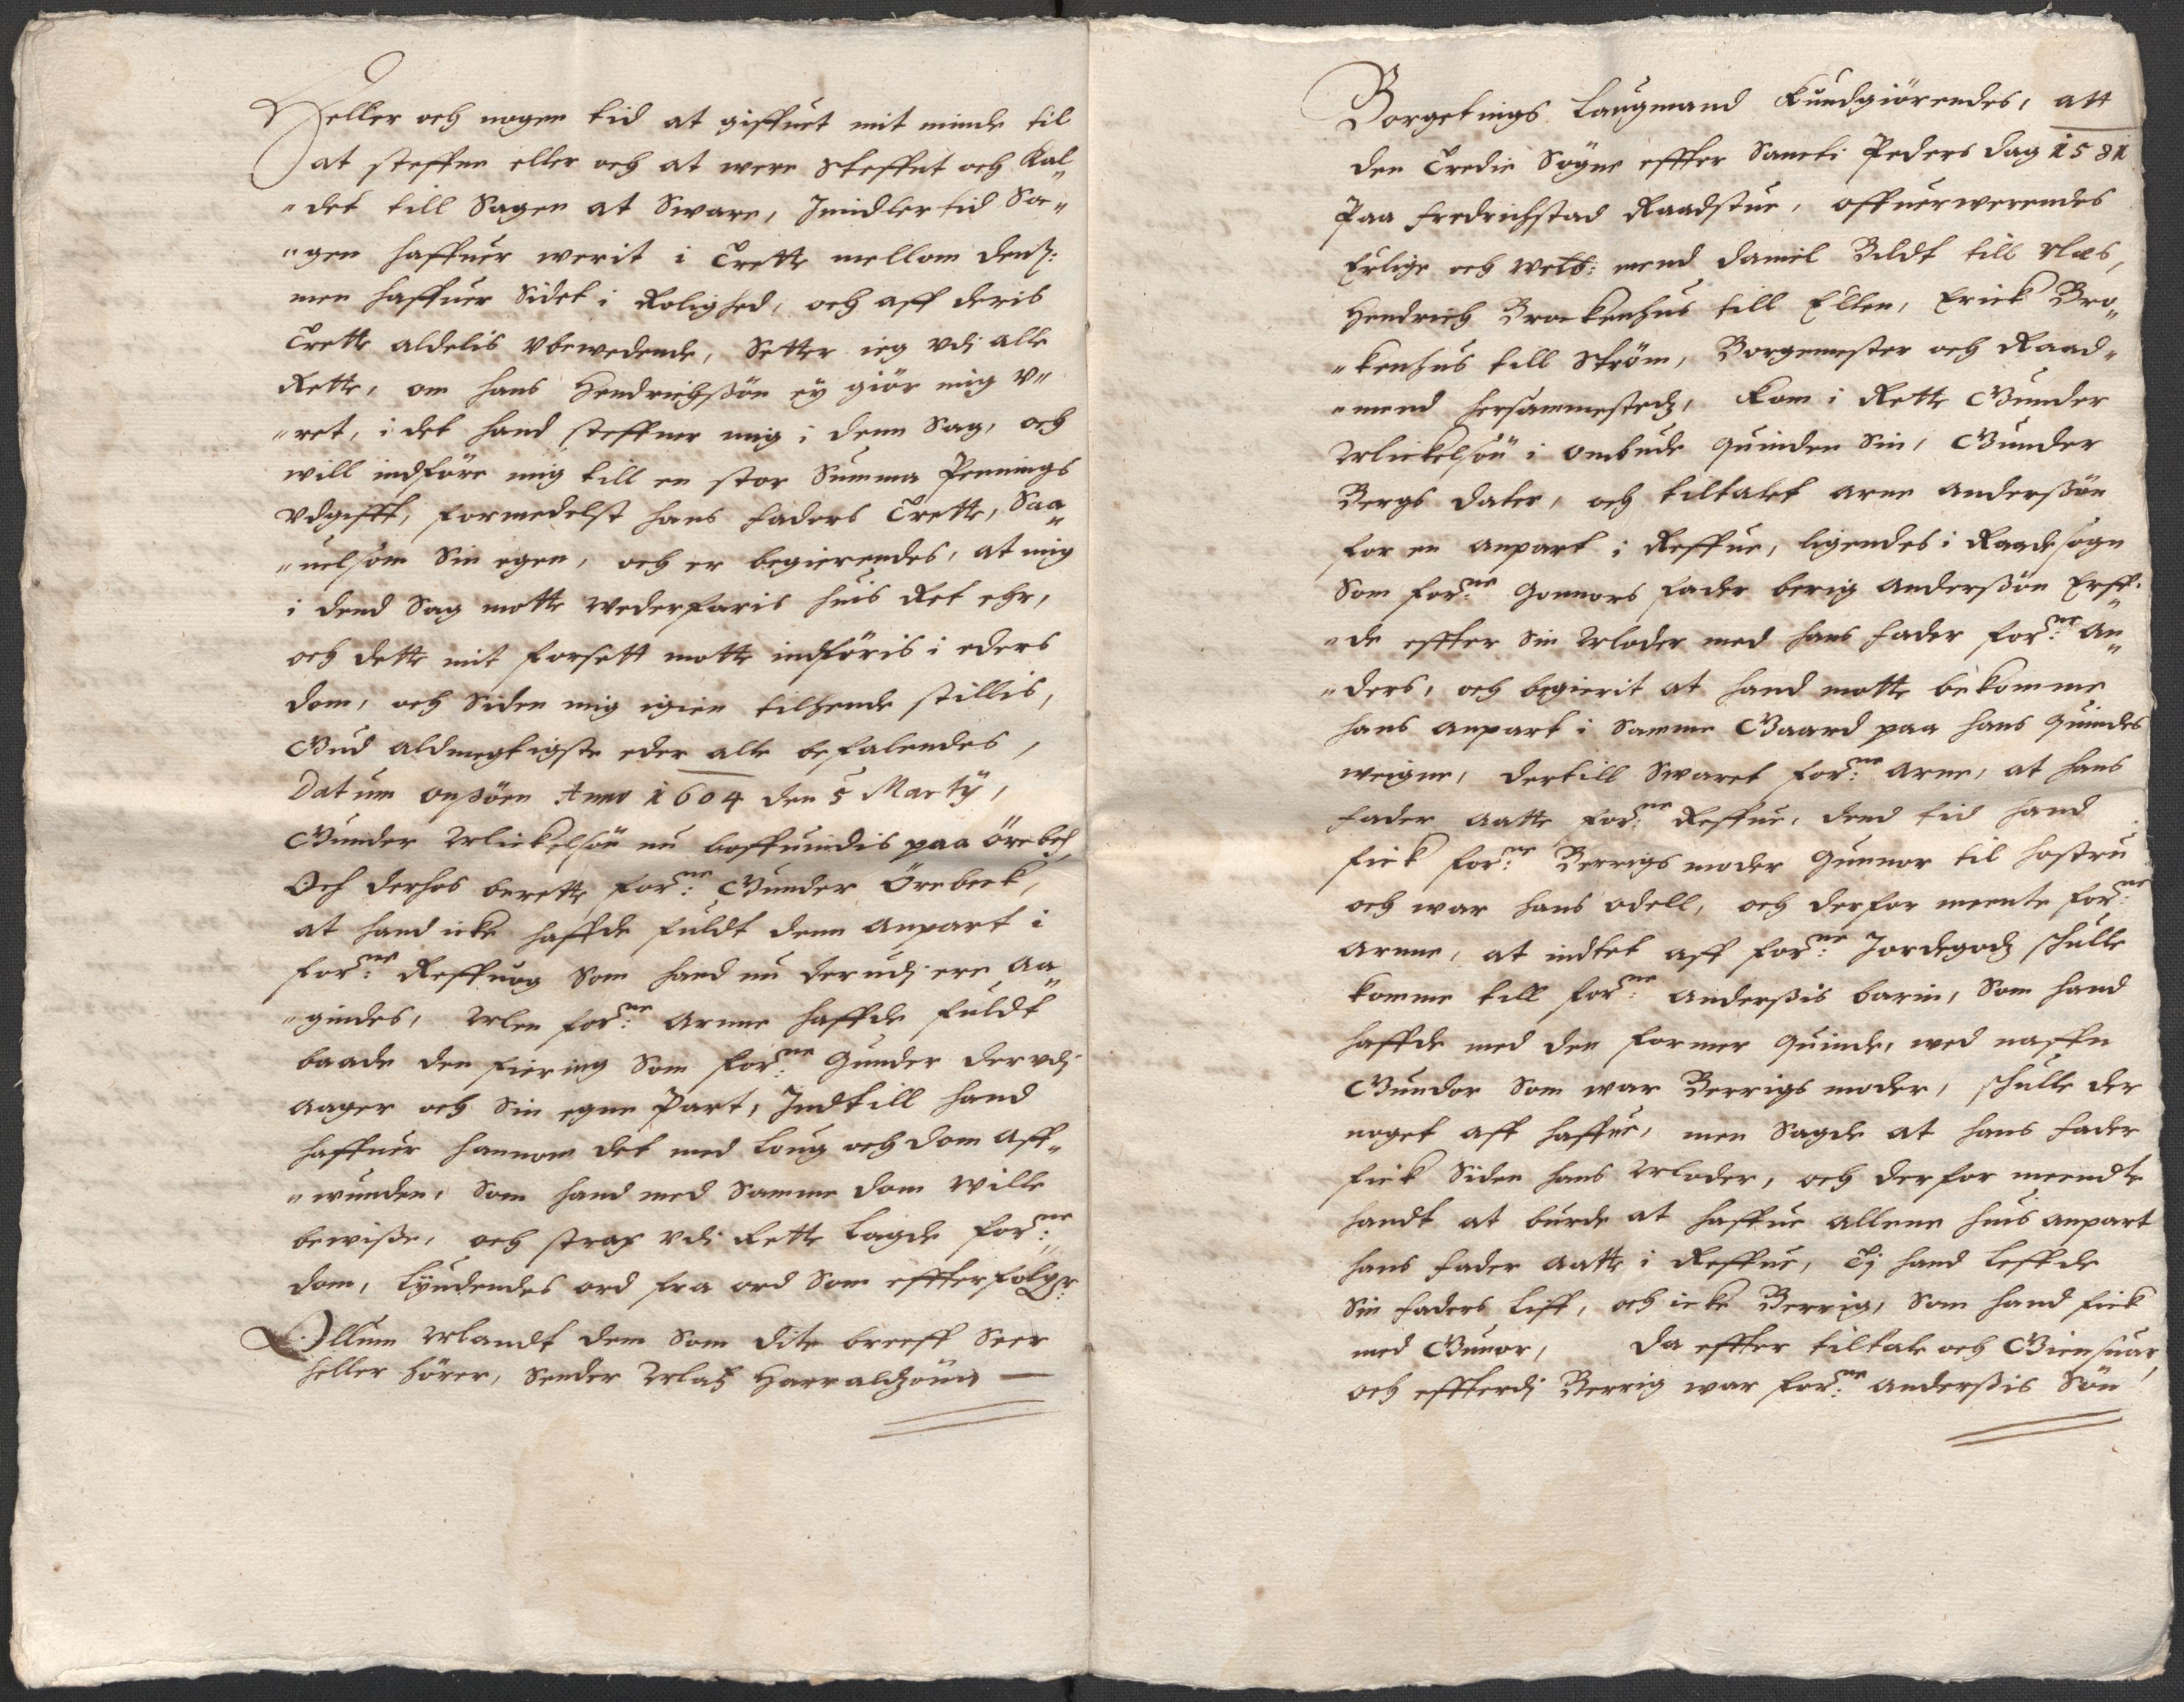 Heller och nogen tid at giffuet mit minde til
at steffne eller och at were Steffnt och Kal„
„det till Sagen at Sware, Imidlertid Sa„
„gen haffuer werit i Trette mellom denß:
men haffuer Sidet i Rolighed, och aff deris
Trette aldelis vbewedende, Setter ieg vdj alle
Rette, om hans Hendrichßøn ey giør mig v„
„ret, i det hand steffner mig i denn Sag, och
will indføre mig till en stor Summa Pennings
vdgifft, formedelst hans faders Trette, Saa„
„uelsom Sin egen, och er begierendes, at mig
i dend Sag motte wederfaris huis Ret ehr,
och dette mit forsett motte indføris i eders
dom, och Siden mig igien tilhende stillis,
Gud aldmegtigste eder alle befalendes,
Datum onßøen Anno 1604 den 5 Martÿ,
Gunder Mickelsøn nu boffuindis paa Ørebech,
Och derhos berette for:ne Gunder Ørebeck,
at hand icke haffde fuldt denn anpart i
for:ne Reffuog Som hand nu derudj ere aa„
„gindes, Men for:ne Arnne haffde fuldt
baade den fiering Som for:ne Gunder dervdj
aager och Sin egne Part, Indtill hand
haffuer hannom det med Loug och dom aff„
„wunden, Som hand med Samme dom wille
bewisße, och strax vdi Rette Lagde for:ne
dom, Lÿudendes ord fra ord Som effterfølger:
Ollum Mandt dem Som dite breeff Seer
heller hører, Sender Matz Harraldzønn
Borgetings Laugmand Kundgiørendes, att
den Tredie Søgne effter Sancti Peders dag 1581
Paa Fredrichstad Raadstue, offuerwerendes
Erlige och Welb: mend Daniel Bildt till Næs,
Hendrich Brockenhus till Ellen, Erick Bro„
„kenhus till Strøm, Borgemester och Raad„
„mend hersammestedz, Kom i Rette Gunder
Mickelsøn i ombude quinden Sin, Gunder
Bergs dater, och tiltalet Arne Anderßøn
for en anpart i Reffue, ligendes i Raadesogn
Som for:ne Gonnors fader berig Anderßøn Erff„
„de effter Sin Moder med hans fader for:ne An„
„ders, och begierit at hand motte bekomme
hans anpart i Samme Gaard paa hans Quindes
weigne, dertill Swaret for:ne Arne, at hans
fader aatte for:ne Reffue, dend tid hand
fick for:ne Berrigs moder Gunnor til hostru
och war hans odell, och derfor meente for:ne
Arnne, at indtet aff for:ne Jordegodz schulle
komme till for:ne Anderßis barin, Som hand
haffde med den former Quinde, wed naffn
Gundor Som war Berrigs moder, schulle der
noget aff haffue, men Sagde at hans fader
fick Siden hans Moder, och derfor meendte
handt at burde at haffue allene huis anpart
hans fader aatte i Reffue, Tj hand Leffde
Sin faders Liff, och icke Berrig, Som hand fick
med Gunor, Da effter tiltale och Giensuar,
och effterdj Berrig war for:ne Anderßis Søn